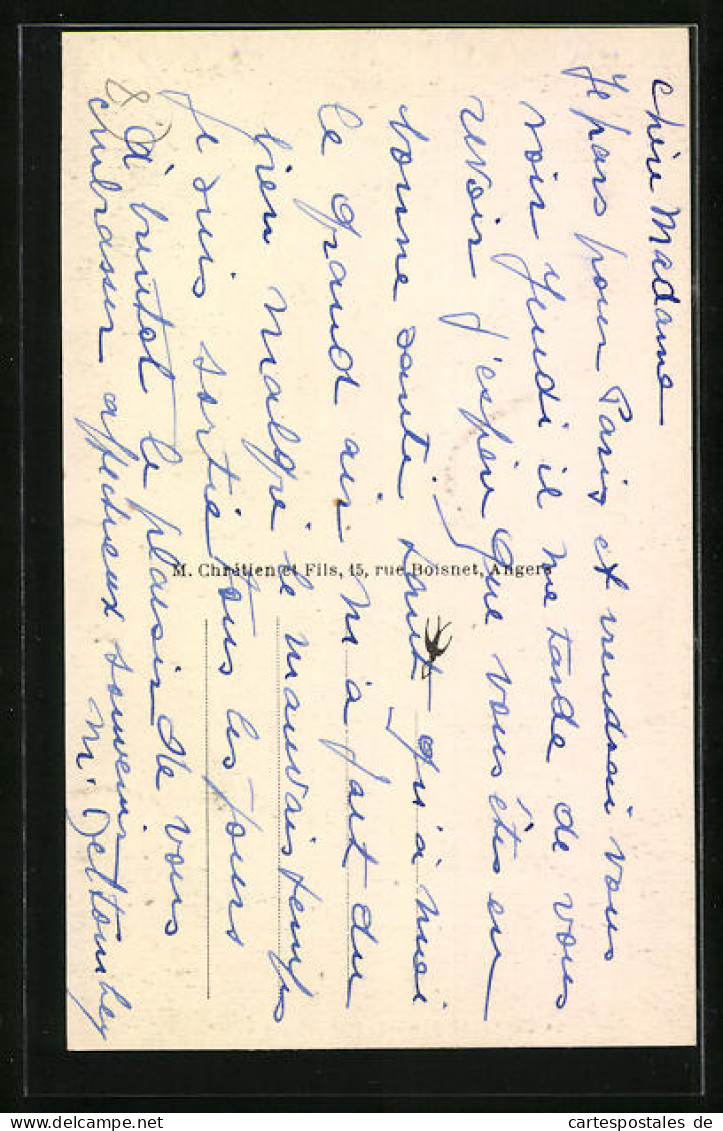 chère Madame
Je pars pour Paris et viendrai vous
voir Jeudi il me tarde de vous
revoir j'espère que vous êtes en
bonne santé quant qu'à moi
le grand air m'a fait du
bien malgré le mauvais temps
Je suis sortie tous les jours
à bientot le plaisir de vous
embrasser affectueux souvenir
M.
M. Chrétien et Fils, 15, rue Boisnet, Angers
8
cartespostales de